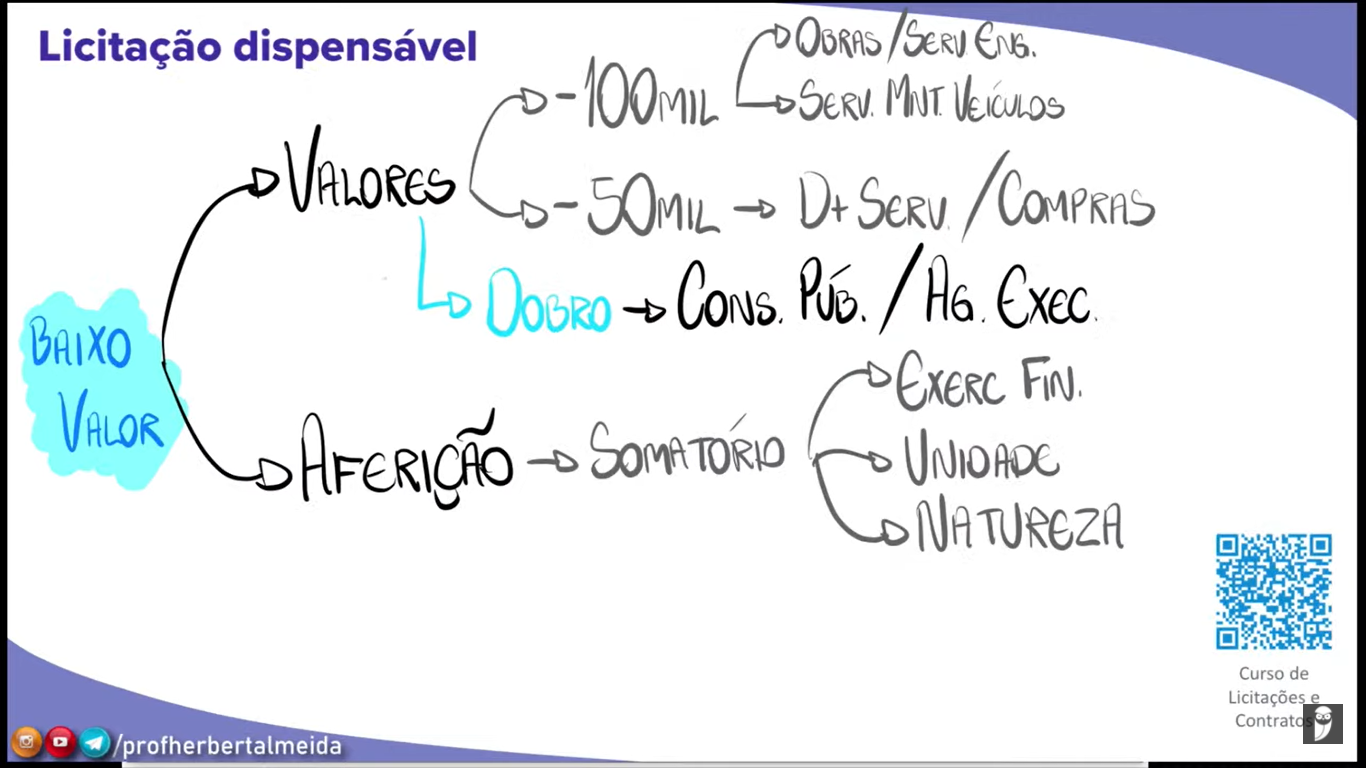 Licitação dispensável
BAIXO
VALOR
VALORES
-100MIL
OBRAS/SERV. ENG.
SERV. MNT. VEÍCULOS
-50MIL → D+ SERV. / COMPRAS
DOBRO → CONS. PÚB. / AG. EXEC.
AFERIÇÃO → SOMATÓRIO
EXERC FIN.
UNIDADE
NATUREZA
Curso de
Licitações e
Contratos
/profherbertalmeida